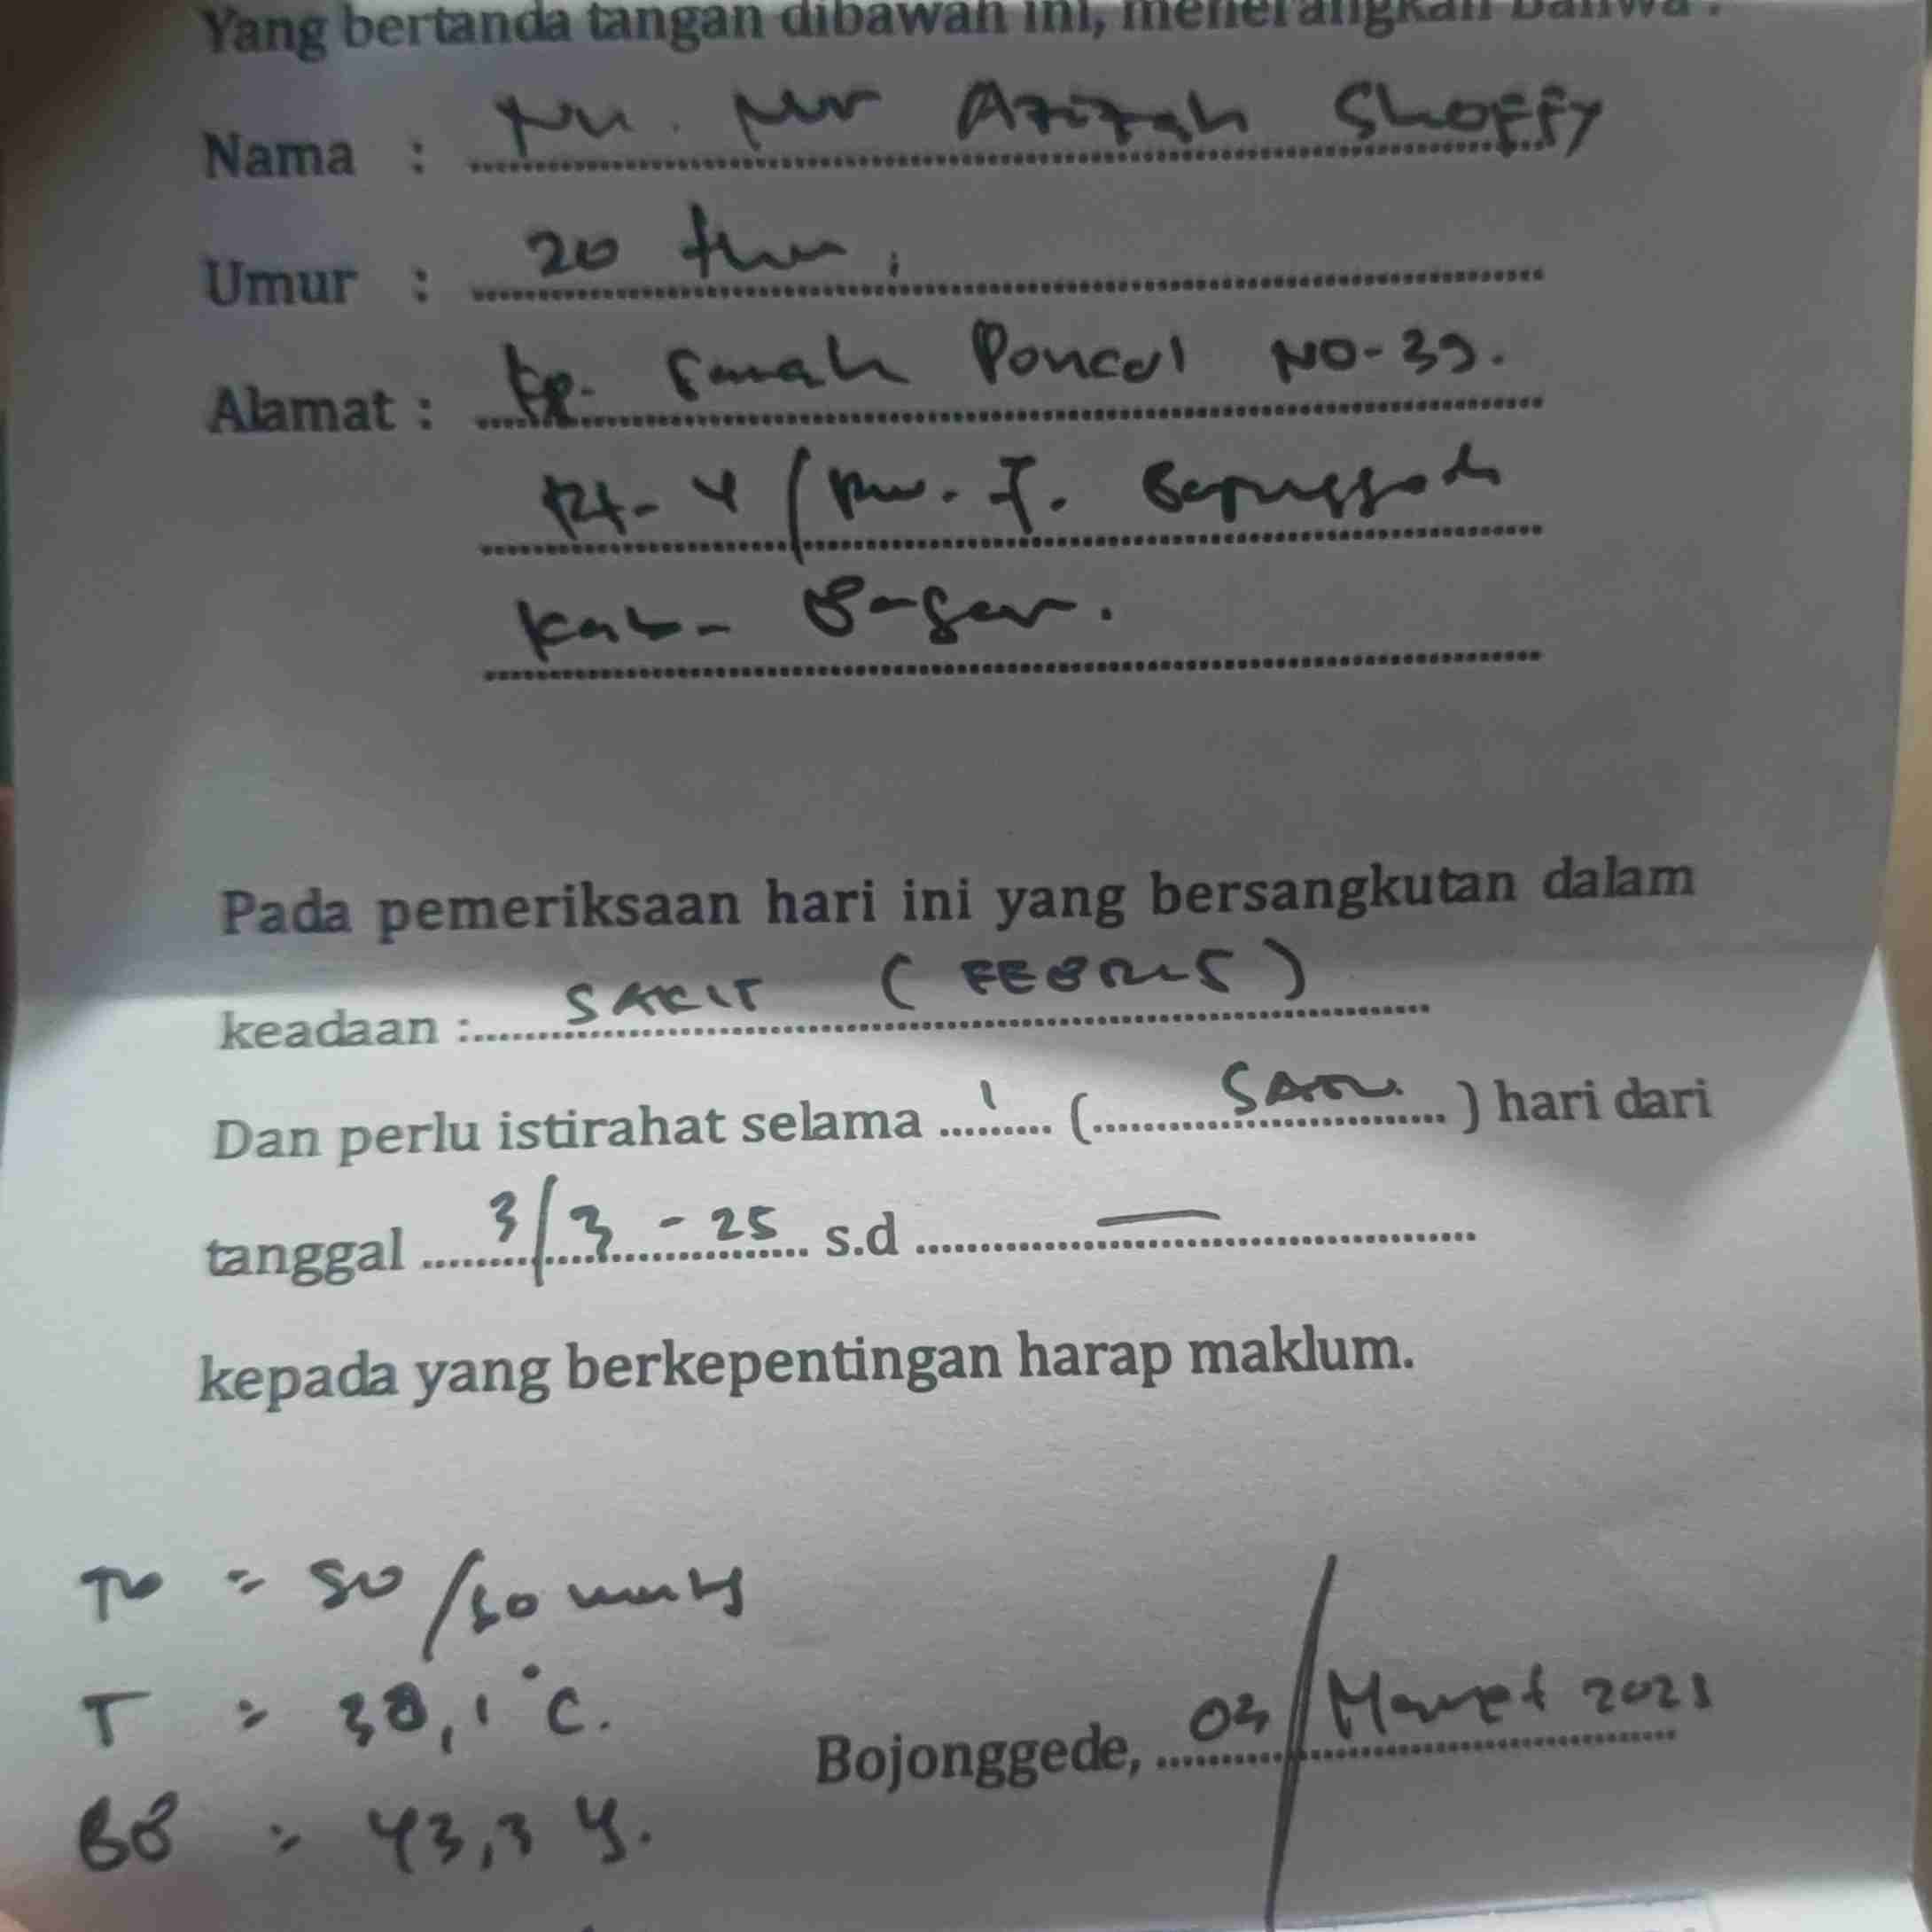 Yang bertanda tangan dibawah ini, menerangkan bahwa :
Nama : Nn. Nur Azizah Shoffy
Umur : 20 thn
Alamat : Kp. Poncol NO-39.
Rt-4/Rw. 7.
Kab- Bogor.
Pada pemeriksaan hari ini yang bersangkutan dalam
keadaan : SAKIT (FEBRIS)
Dan perlu istirahat selama 1 (SATU) hari dari
tanggal 3/3 - 25 s.d —
kepada yang berkepentingan harap maklum.
TD = /60 mmHg
T = 38,1 °C.
Bojonggede, 03/Maret 2025
BB = 43,3 kg.